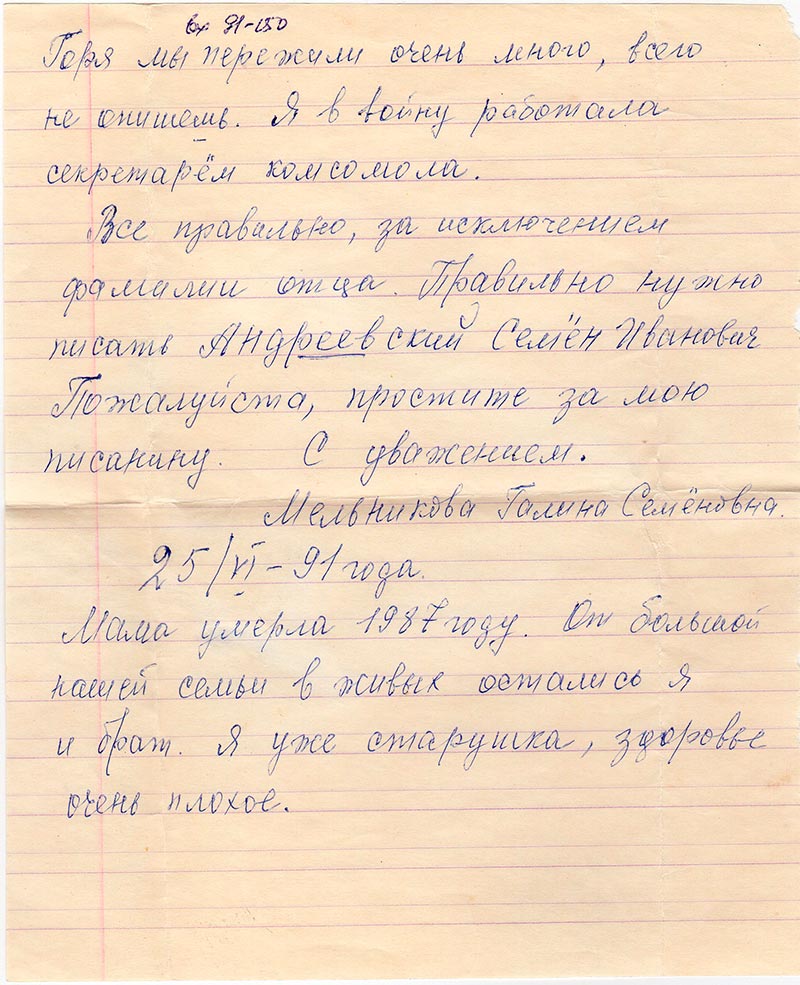 вх 91-150
Горя мы пережили очень много, всего
не опишешь. Я в войну работала
секретарём комсомола.
Все правильно, за исключением
фамилии отца. Правильно нужно
писать Андреевский Семён Иванович
Пожалуйста, простите за мою
писанину. С уважением.
Мельникова Галина Семёновна.
25/VI-91 года.
Мама умерла 1987 году. От большой
нашей семьи в живых остались я
и брат. Я уже старушка, здоровье
очень плохое.